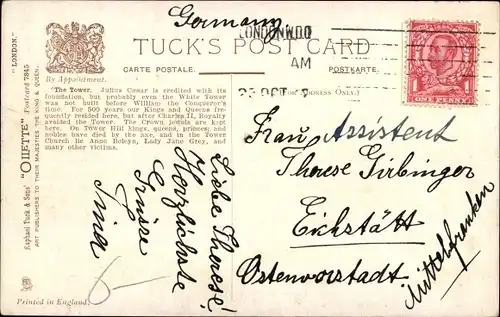 Germany
LONDON W.D.O
AM
OCT
TUCK'S POST CARD
CARTE POSTALE.
POSTKARTE.
By Appointment.
"The Tower. Julius Cæsar is credited with its
foundation, but probably even the White Tower
was not built before William the Conqueror's
time. For 500 years our Kings and Queens fre-
quently resided here, but after Charles II, Royalty
avoided the Tower. The Crown jewels are kept
here. On Tower Hill kings, queens, princes, and
nobles have died by the axe, and in the Tower
Church lie Anne Boleyn, Lady Jane Grey, and
many other victims.
ADDRESS ONLY.)
ONE PENNY
"LONDON."
Raphael Tuck & Sons' "OILETTE" Postcard 7845
ART PUBLISHERS TO THEIR MAJESTIES THE KING & QUEEN.
Printed in England.
Liebe Therese!
Herzlichste
Grüsse
Frau Assistent
Therese Girbinger
Eichstätt
Ostenvorstadt
Mittelfranken